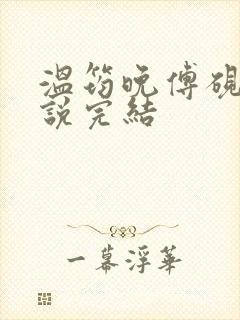 溫筠晚傅硯
說完結
一幕浮華